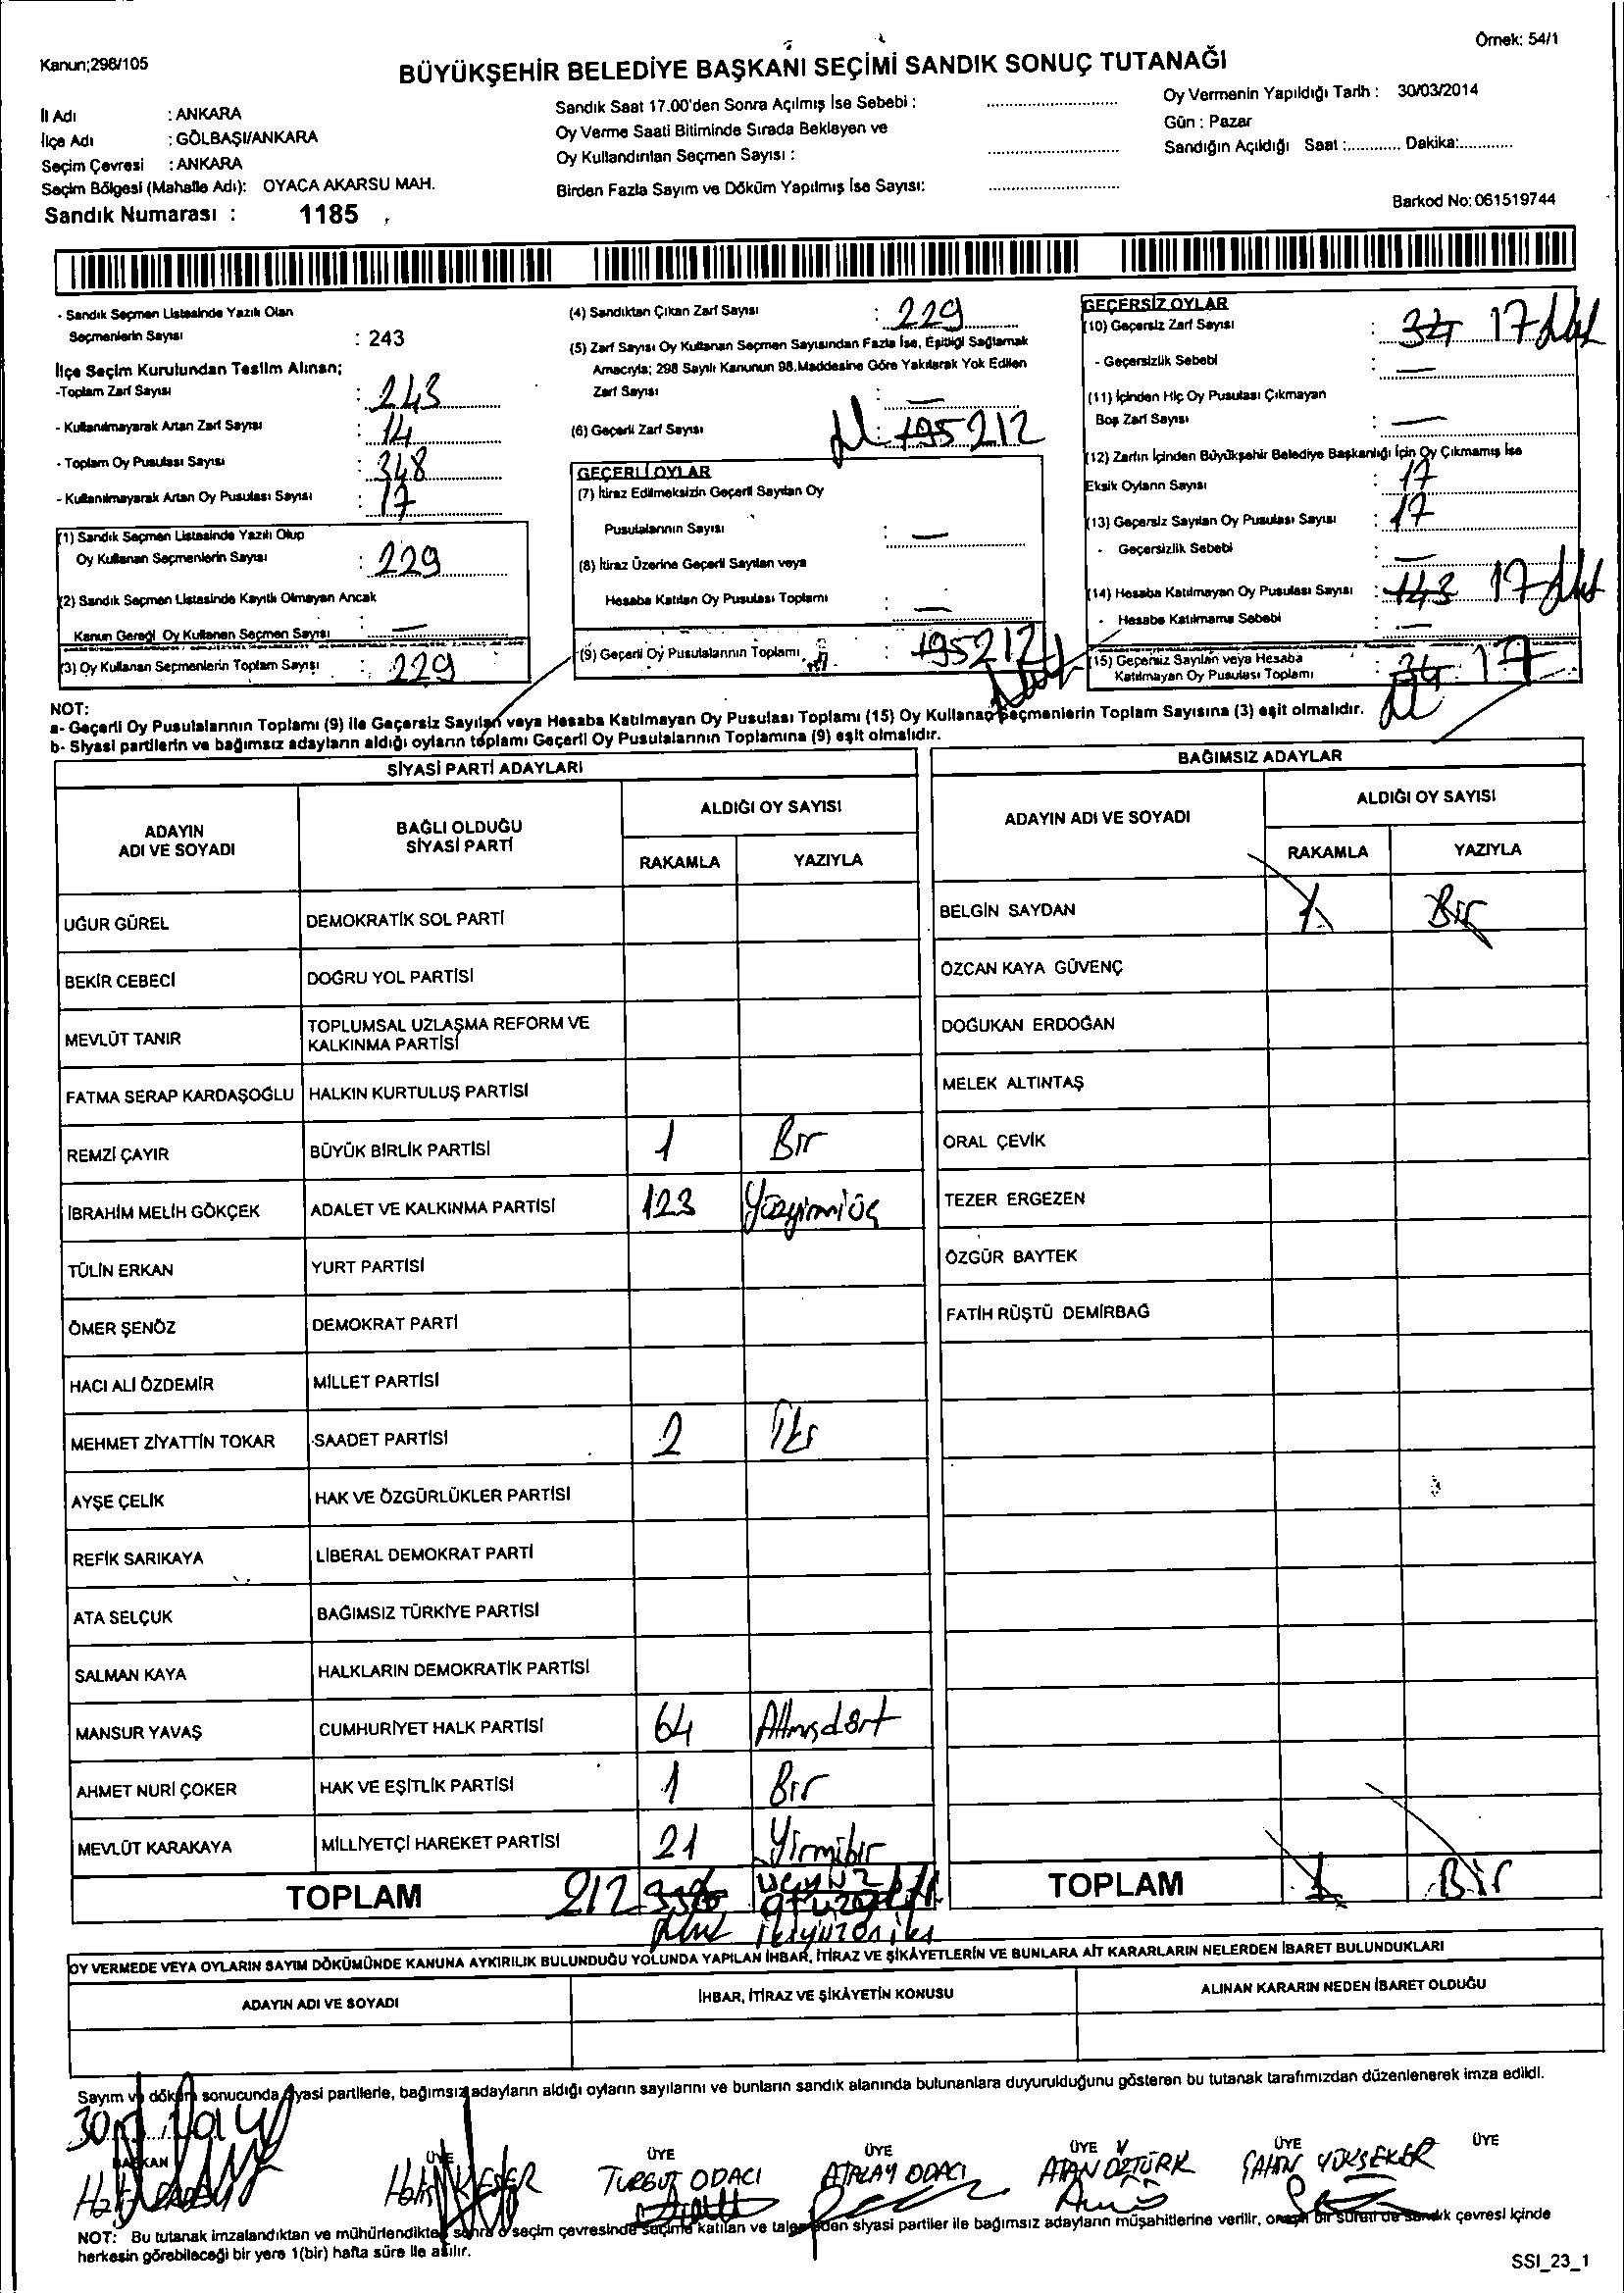 Kanun;298/105
Örnek: 54/1
BÜYÜKŞEHİR BELEDİYE BAŞKANI SEÇİMİ SANDIK SONUÇ TUTANAĞI
İl Adı : ANKARA
İlçe Adı : GÖLBAŞI/ANKARA
Seçim Çevresi : ANKARA
Seçim Bölgesi (Mahalle Adı): OYACA AKARSU MAH.
Sandık Numarası : 1185
Sandık Saat 17.00'den Sonra Açılmış İse Sebebi :
Oy Verme Saati Bitiminde Sırada Bekleyen ve
Oy Kullandırılan Seçmen Sayısı :
Birden Fazla Sayım ve Döküm Yapılmış İse Sayısı:
Oy Vermenin Yapıldığı Tarih : 30/03/2014
Gün : Pazar
Sandığın Açıldığı Saat :............ Dakika:............
Barkod No: 061519744
- Sandık Seçmen Listesinde Yazılı Olan
Seçmenlerin Sayısı : 243
İlçe Seçim Kurulundan Teslim Alınan;
-Toplam Zarf Sayısı : 243
- Kullanılmayarak Artan Zarf Sayısı : 14
- Toplam Oy Pusulası Sayısı : 348
- Kullanılmayarak Artan Oy Pusulası Sayısı : 17
(1) Sandık Seçmen Listesinde Yazılı Olup
Oy Kullanan Seçmenlerin Sayısı : 229
(2) Sandık Seçmen Listesinde Kayıtlı Olmayan Ancak
Kanun Gereği Oy Kullanan Seçmen Sayısı : —
(3) Oy Kullanan Seçmenlerin Toplam Sayışı : 229
(4) Sandıktan Çıkan Zarf Sayısı : 229
(5) Zarf Sayısı Oy Kullanan Seçmen Sayısından Fazla İse, Eşitliği Sağlamak
Amacıyla; 298 Sayılı Kanunun 98.Maddesine Göre Yakılarak Yok Edilen
Zarf Sayısı : —
(6) Geçerli Zarf Sayısı : 195 212
GEÇERLİ OYLAR
(7) İtiraz Edilmeksizin Geçerli Sayılan Oy
Pusulalarının Sayısı : —
(8) İtiraz Üzerine Geçerli Sayılan veya
Hesaba Katılan Oy Pusulası Toplamı : —
(9) Geçerli Oy Pusulalarının Toplamı : 195 212
GEÇERSİZ OYLAR
(10) Geçersiz Zarf Sayısı : 34 17
- Geçersizlik Sebebi : —
(11) İçinden Hiç Oy Pusulası Çıkmayan
Boş Zarf Sayısı : —
(12) Zarfın İçinden Büyükşehir Belediye Başkanlığı İçin Oy Çıkmamış İse
Eksik Oyların Sayısı : 17
(13) Geçersiz Sayılan Oy Pusulası Sayısı : 17
- Geçersizlik Sebebi : —
(14) Hesaba Katılmayan Oy Pusulası Sayısı : 143 17
- Hesaba Katılmama Sebebi : —
(15) Geçersiz Sayılan veya Hesaba
Katılmayan Oy Pusulası Toplamı : 34 17
NOT:
a- Geçerli Oy Pusulalarının Toplamı (9) ile Geçersiz Sayılan veya Hesaba Katılmayan Oy Pusulası Toplamı (15) Oy Kullanan Seçmenlerin Toplam Sayısına (3) eşit olmalıdır.
b- Siyasi partilerin ve bağımsız adayların aldığı oyların toplamı Geçerli Oy Pusulalarının Toplamına (9) eşit olmalıdır.
SİYASİ PARTİ ADAYLARI
ADAYIN ADI VE SOYADI
BAĞLI OLDUĞU SİYASİ PARTİ
ALDIĞI OY SAYISI
RAKAMLA YAZIYLA
UĞUR GÜREL DEMOKRATİK SOL PARTİ
BEKİR CEBECİ DOĞRU YOL PARTİSİ
MEVLÜT TANIR TOPLUMSAL UZLAŞMA REFORM VE KALKINMA PARTİSİ
FATMA SERAP KARDAŞOĞLU HALKIN KURTULUŞ PARTİSİ
REMZİ ÇAYIR BÜYÜK BİRLİK PARTİSİ 1 Bir
İBRAHİM MELİH GÖKÇEK ADALET VE KALKINMA PARTİSİ 123 Yüzyirmiüç
TÜLİN ERKAN YURT PARTİSİ
ÖMER ŞENÖZ DEMOKRAT PARTİ
HACI ALİ ÖZDEMİR MİLLET PARTİSİ
MEHMET ZİYATTİN TOKAR SAADET PARTİSİ 2 İki
AYŞE ÇELİK HAK VE ÖZGÜRLÜKLER PARTİSİ
REFİK SARIKAYA LİBERAL DEMOKRAT PARTİ
ATA SELÇUK BAĞIMSIZ TÜRKİYE PARTİSİ
SALMAN KAYA HALKLARIN DEMOKRATİK PARTİSİ
MANSUR YAVAŞ CUMHURİYET HALK PARTİSİ 64 Altmışdört
AHMET NURİ ÇOKER HAK VE EŞİTLİK PARTİSİ 1 Bir
MEVLÜT KARAKAYA MİLLİYETÇİ HAREKET PARTİSİ 21 Yirmibir
TOPLAM 212
ikiyüzoniki
BAĞIMSIZ ADAYLAR
ADAYIN ADI VE SOYADI
ALDIĞI OY SAYISI
RAKAMLA YAZIYLA
BELGİN SAYDAN 1 Bir
ÖZCAN KAYA GÜVENÇ
DOĞUKAN ERDOĞAN
MELEK ALTINTAŞ
ORAL ÇEVİK
TEZER ERGEZEN
ÖZGÜR BAYTEK
FATİH RÜŞTÜ DEMİRBAĞ
TOPLAM 1 Bir
OY VERMEDE VEYA OYLARIN SAYIM DÖKÜMÜNDE KANUNA AYKIRILIK BULUNDUĞU YOLUNDA YAPILAN İHBAR, İTİRAZ VE ŞİKÂYETLERİN VE BUNLARA AİT KARARLARIN NELERDEN İBARET BULUNDUKLARI
ADAYIN ADI VE SOYADI
İHBAR, İTİRAZ VE ŞİKÂYETİN KONUSU
ALINAN KARARIN NEDEN İBARET OLDUĞU
Sayım ve döküm sonucunda siyasi partilerle, bağımsız adayların aldığı oyların sayılarını ve bunların sandık alanında bulunanlara duyurulduğunu gösteren bu tutanak tarafımızdan düzenlenerek imza edildi.
BAŞKAN ÜYE ÜYE ÜYE ÜYE ÜYE ÜYE
TURGUT ODACI ATALAY ODACI ATAN ÖZTÜRK ŞAHİN YÜKSEKER
NOT: Bu tutanak imzalandıktan ve mühürlendikten sonra o seçim çevresinde seçime katılan ve talep eden siyasi partiler ile bağımsız adayların müşahitlerine verilir, onaylı bir sureti de sandık çevresi içinde
herkesin görebileceği bir yere 1(bir) hafta süre ile asılır.
SSI_23_1